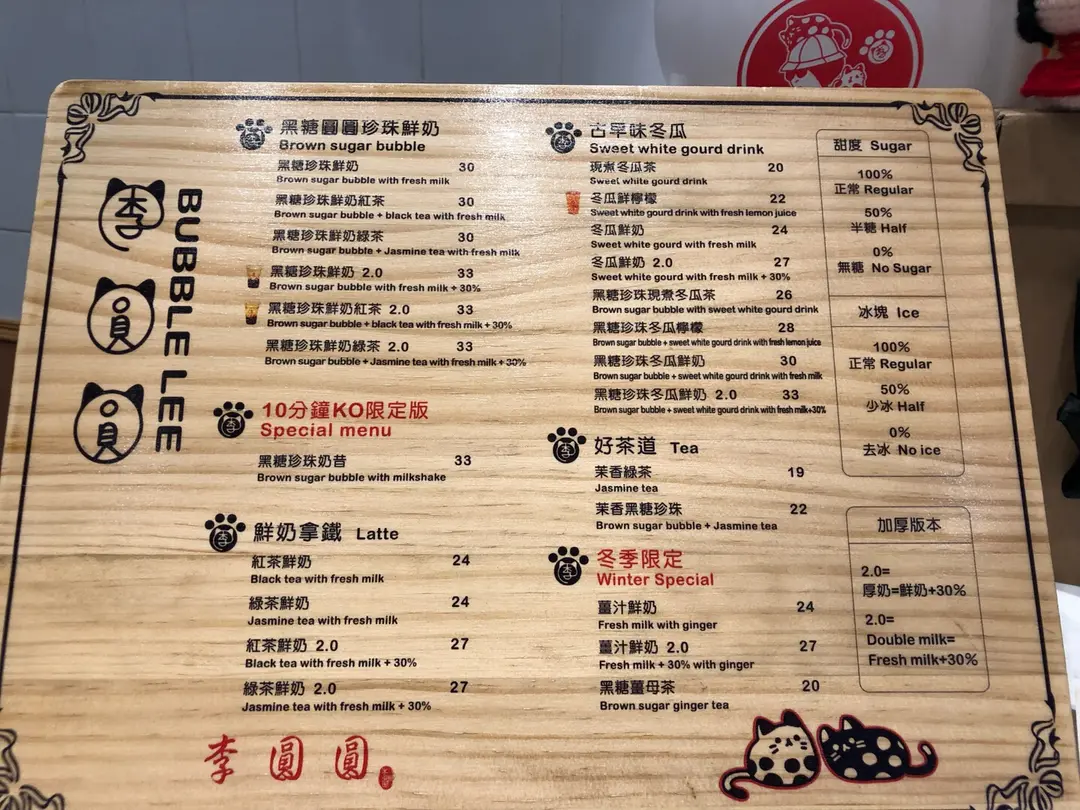 李圓圓
BUBBLE LEE
黑糖圓圓珍珠鮮奶
Brown sugar bubble
黑糖珍珠鮮奶 30
Brown sugar bubble with fresh milk
黑糖珍珠鮮奶紅茶 30
Brown sugar bubble + black tea with fresh milk
黑糖珍珠鮮奶綠茶 30
Brown sugar bubble + Jasmine tea with fresh milk
黑糖珍珠鮮奶 2.0 33
Brown sugar bubble with fresh milk + 30%
黑糖珍珠鮮奶紅茶 2.0 33
Brown sugar bubble + black tea with fresh milk + 30%
黑糖珍珠鮮奶綠茶 2.0 33
Brown sugar bubble + Jasmine tea with fresh milk + 30%
10分鐘KO限定版
Special menu
黑糖珍珠奶昔 33
Brown sugar bubble with milkshake
鮮奶拿鐵 Latte
紅茶鮮奶 24
Black tea with fresh milk
綠茶鮮奶 24
Jasmine tea with fresh milk
紅茶鮮奶 2.0 27
Black tea with fresh milk + 30%
綠茶鮮奶 2.0 27
Jasmine tea with fresh milk + 30%
李圓圓
古早味冬瓜
Sweet white gourd drink
現煮冬瓜茶 20
Sweet white gourd drink
冬瓜鮮檸檬 22
Sweet white gourd drink with fresh lemon juice
冬瓜鮮奶 24
Sweet white gourd drink with fresh milk
冬瓜鮮奶 2.0 27
Sweet white gourd drink with fresh milk + 30%
黑糖珍珠現煮冬瓜茶 26
Brown sugar bubble with sweet white gourd drink
黑糖珍珠冬瓜檸檬 28
Brown sugar bubble + sweet white gourd drink with fresh lemon juice
黑糖珍珠冬瓜鮮奶 30
Brown sugar bubble + sweet white gourd drink with fresh milk
黑糖珍珠冬瓜鮮奶 2.0 33
Brown sugar bubble + sweet white gourd drink with fresh milk+30%
好茶道 Tea
茉香綠茶 19
Jasmine tea
茉香黑糖珍珠 22
Brown sugar bubble + Jasmine tea
冬季限定
Winter Special
薑汁鮮奶 24
Fresh milk with ginger
薑汁鮮奶 2.0 27
Fresh milk + 30% with ginger
黑糖薑母茶 20
Brown sugar ginger tea
甜度 Sugar
100%
正常 Regular
50%
半糖 Half
0%
無糖 No Sugar
冰塊 Ice
100%
正常 Regular
50%
少冰 Half
0%
去冰 No ice
加厚版本
2.0=
厚奶=鮮奶+30%
2.0=
Double milk=
Fresh milk+30%